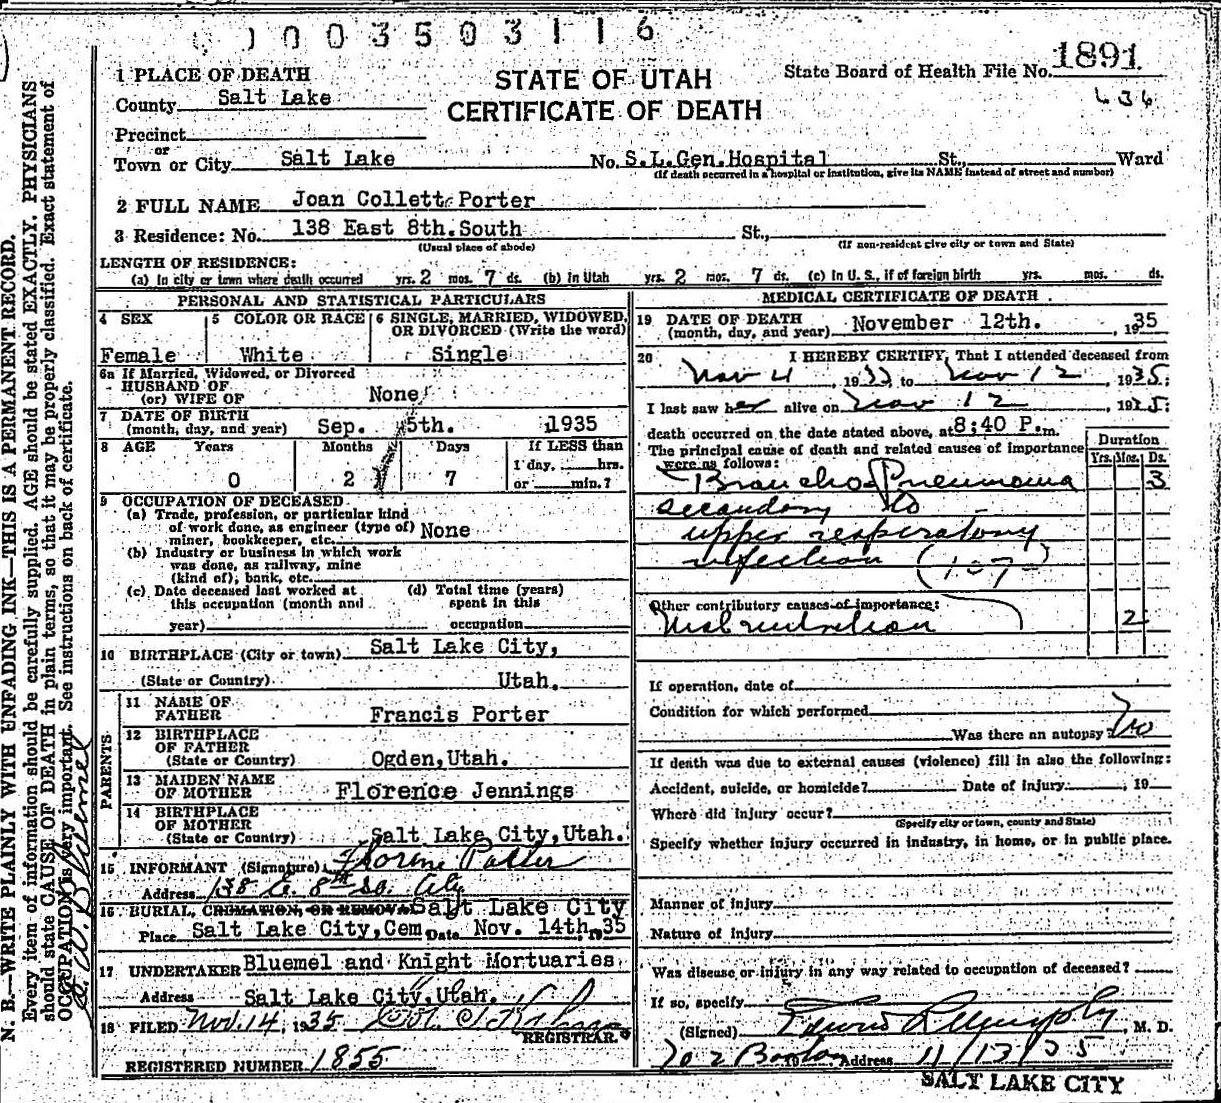 1003503116
1 PLACE OF DEATH
STATE OF UTAH
CERTIFICATE OF DEATH
State Board of Health File No. 1891
636
County Salt Lake
Precinct
or
Town or City Salt Lake No. S.L.Gen.Hospital St., Ward
(If death occurred in a hospital or institution, give its NAME instead of street and number)
2 FULL NAME Joan Collett Porter
3 Residence: No. 138 East 8th.South St.,
(Usual place of abode) (If non-resident give city or town and State)
LENGTH OF RESIDENCE:
(a) In city or town where death occurred yrs. 2 mos. 7 ds. (b) in Utah yrs. 2 mos. 7 ds. (c) in U. S., if of foreign birth yrs. mos. ds.
PERSONAL AND STATISTICAL PARTICULARS
4 SEX Female
5 COLOR OR RACE White
6 SINGLE, MARRIED, WIDOWED, OR DIVORCED (Write the word) Single
6a If Married, Widowed, or Divorced
HUSBAND OF
(or) WIFE OF None
7 DATE OF BIRTH
(month, day, and year) Sep. 5th. 1935
8 AGE Years Months Days If LESS than
0 2 7 1 day, hrs.
or min.?
9 OCCUPATION OF DECEASED
(a) Trade, profession, or particular kind
of work done, as engineer (type of)
miner, bookkeeper, etc. None
(b) Industry or business in which work
was done, as railway, mine
(kind of), bank, etc.
(c) Date deceased last worked at
this occupation (month and
year)
(d) Total time (years)
spent in this
occupation
10 BIRTHPLACE (City or town) Salt Lake City,
(State or Country) Utah.
PARENTS
11 NAME OF
FATHER Francis Porter
12 BIRTHPLACE
OF FATHER
(State or Country) Ogden,Utah.
13 MAIDEN NAME
OF MOTHER Florence Jennings
14 BIRTHPLACE
OF MOTHER
(State or Country) Salt Lake City,Utah.
15 INFORMANT (Signature) Florene Porter
Address 138 E. 8th So. City
16 BURIAL, CREMATION, OR REMOVAL Salt Lake City
Place Salt Lake City,Cem Date Nov. 14th, 1935
17 UNDERTAKER Bluemel and Knight Mortuaries
Address Salt Lake City,Utah.
18 FILED Nov. 14, 1935
REGISTRAR.
REGISTERED NUMBER 1855
MEDICAL CERTIFICATE OF DEATH
19 DATE OF DEATH
(month, day, and year) November 12th. 1935
20 I HEREBY CERTIFY, That I attended deceased from
Nov 4, 1935 to Nov 12, 1935;
I last saw her alive on Nov 12, 1935;
death occurred on the date stated above, at 8:40 P.m.
The principal cause of death and related causes of importance
were as follows:
Duration
Yrs. Mos. Ds.
Broncho-Pneumonia 3
secondary to
upper respiratory
infection (107)
Other contributory causes of importance:
Malnutrition 2
If operation, date of
Condition for which performed
Was there an autopsy? No
If death was due to external causes (violence) fill in also the following:
Accident, suicide, or homicide? Date of injury 19
Where did injury occur?
(Specify city or town, county and State)
Specify whether injury occurred in industry, in home, or in public place.
Manner of injury
Nature of injury
Was disease or injury in any way related to occupation of deceased?
If so, specify
(Signed) M. D.
702 Boston Address 11/13/35
SALT LAKE CITY
N. B.—WRITE PLAINLY WITH UNFADING INK—THIS IS A PERMANENT RECORD.
Every item of information should be carefully supplied. AGE should be stated EXACTLY. PHYSICIANS
should state CAUSE OF DEATH in plain terms, so that it may be properly classified. Exact statement of
OCCUPATION is very important. See instructions on back of certificate.